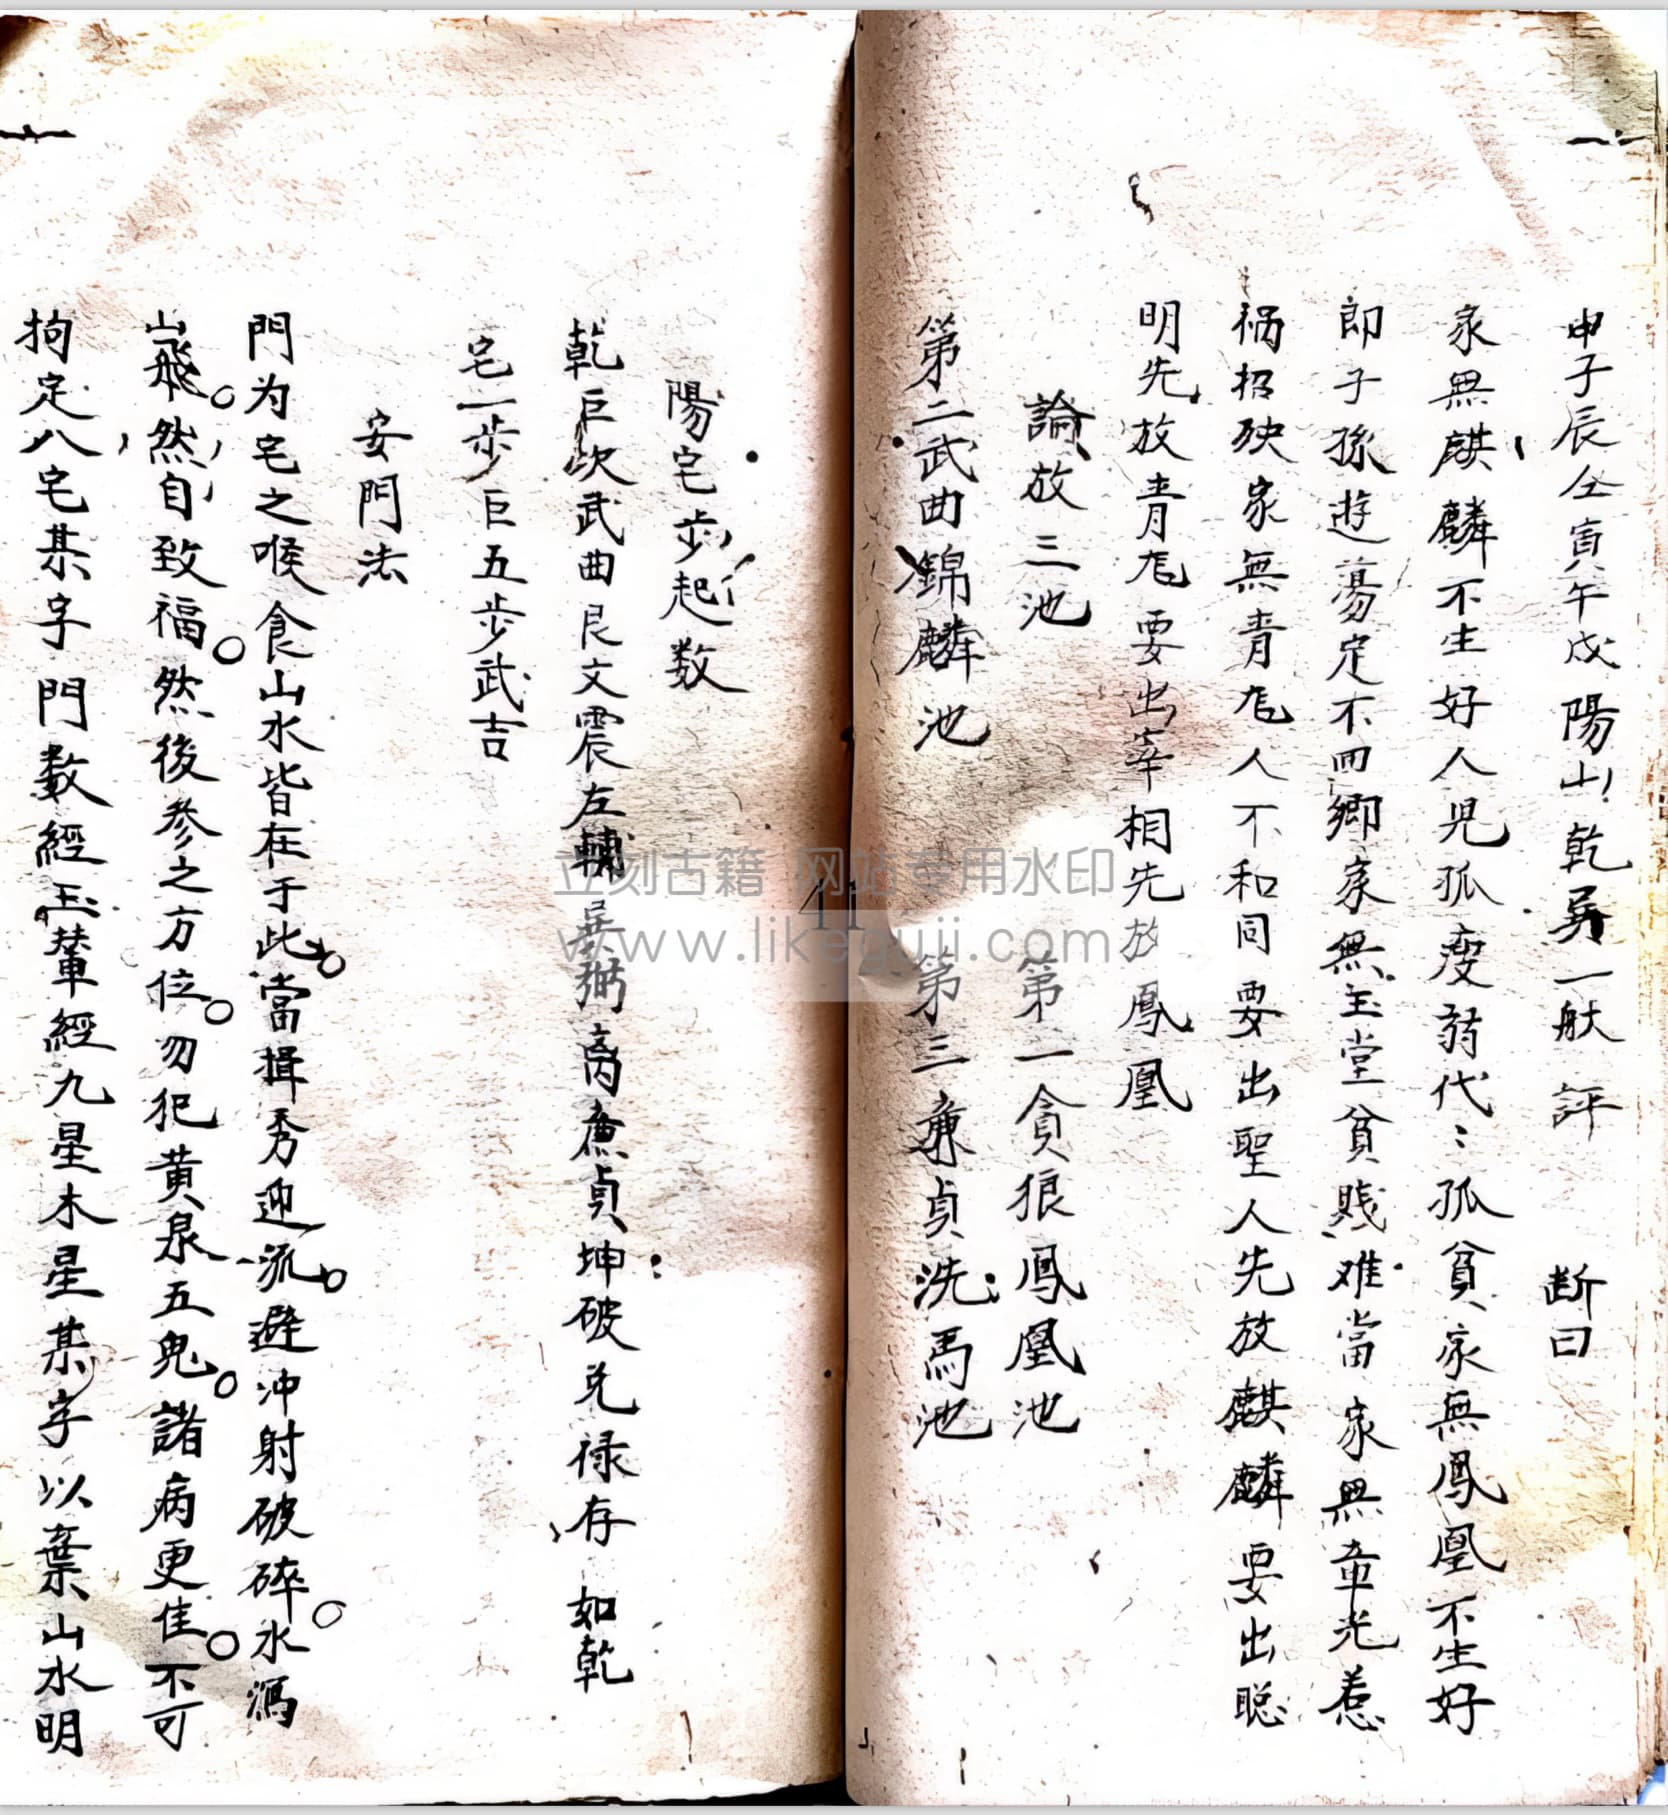 申子辰仝寅午戌陽山乾巽一般評 断曰
家無麒麟不生好人児孤瘦弱代〻孤貧家無鳳凰不生好
郎子孫遊蕩定不回鄉家無玉堂貧賤难當家無章光惹
禍招殃家無青龙人不和同要出聖人先放麒麟要出聡
明先放青龙要出宰相先放鳳凰
論放三池 第一貪狼鳳凰池
第二武曲錦麟池 第三亷貞洗馬池
陽宅步起数
乾巨坎武曲艮文震左輔巽弼离亷貞坤破兑禄存如乾
宅一步巨五步武吉
安門法
門为宅之喉食山水皆在于此當揖秀迎流避冲射破碎水瀉
山飛然自致福然後參之方位勿犯黄泉五鬼諸病更佳不可
拘定八宅某字門数經玉輦經九星木星某字以棄山水明
立刻古籍 网站专用水印
www.likeguji.com
41